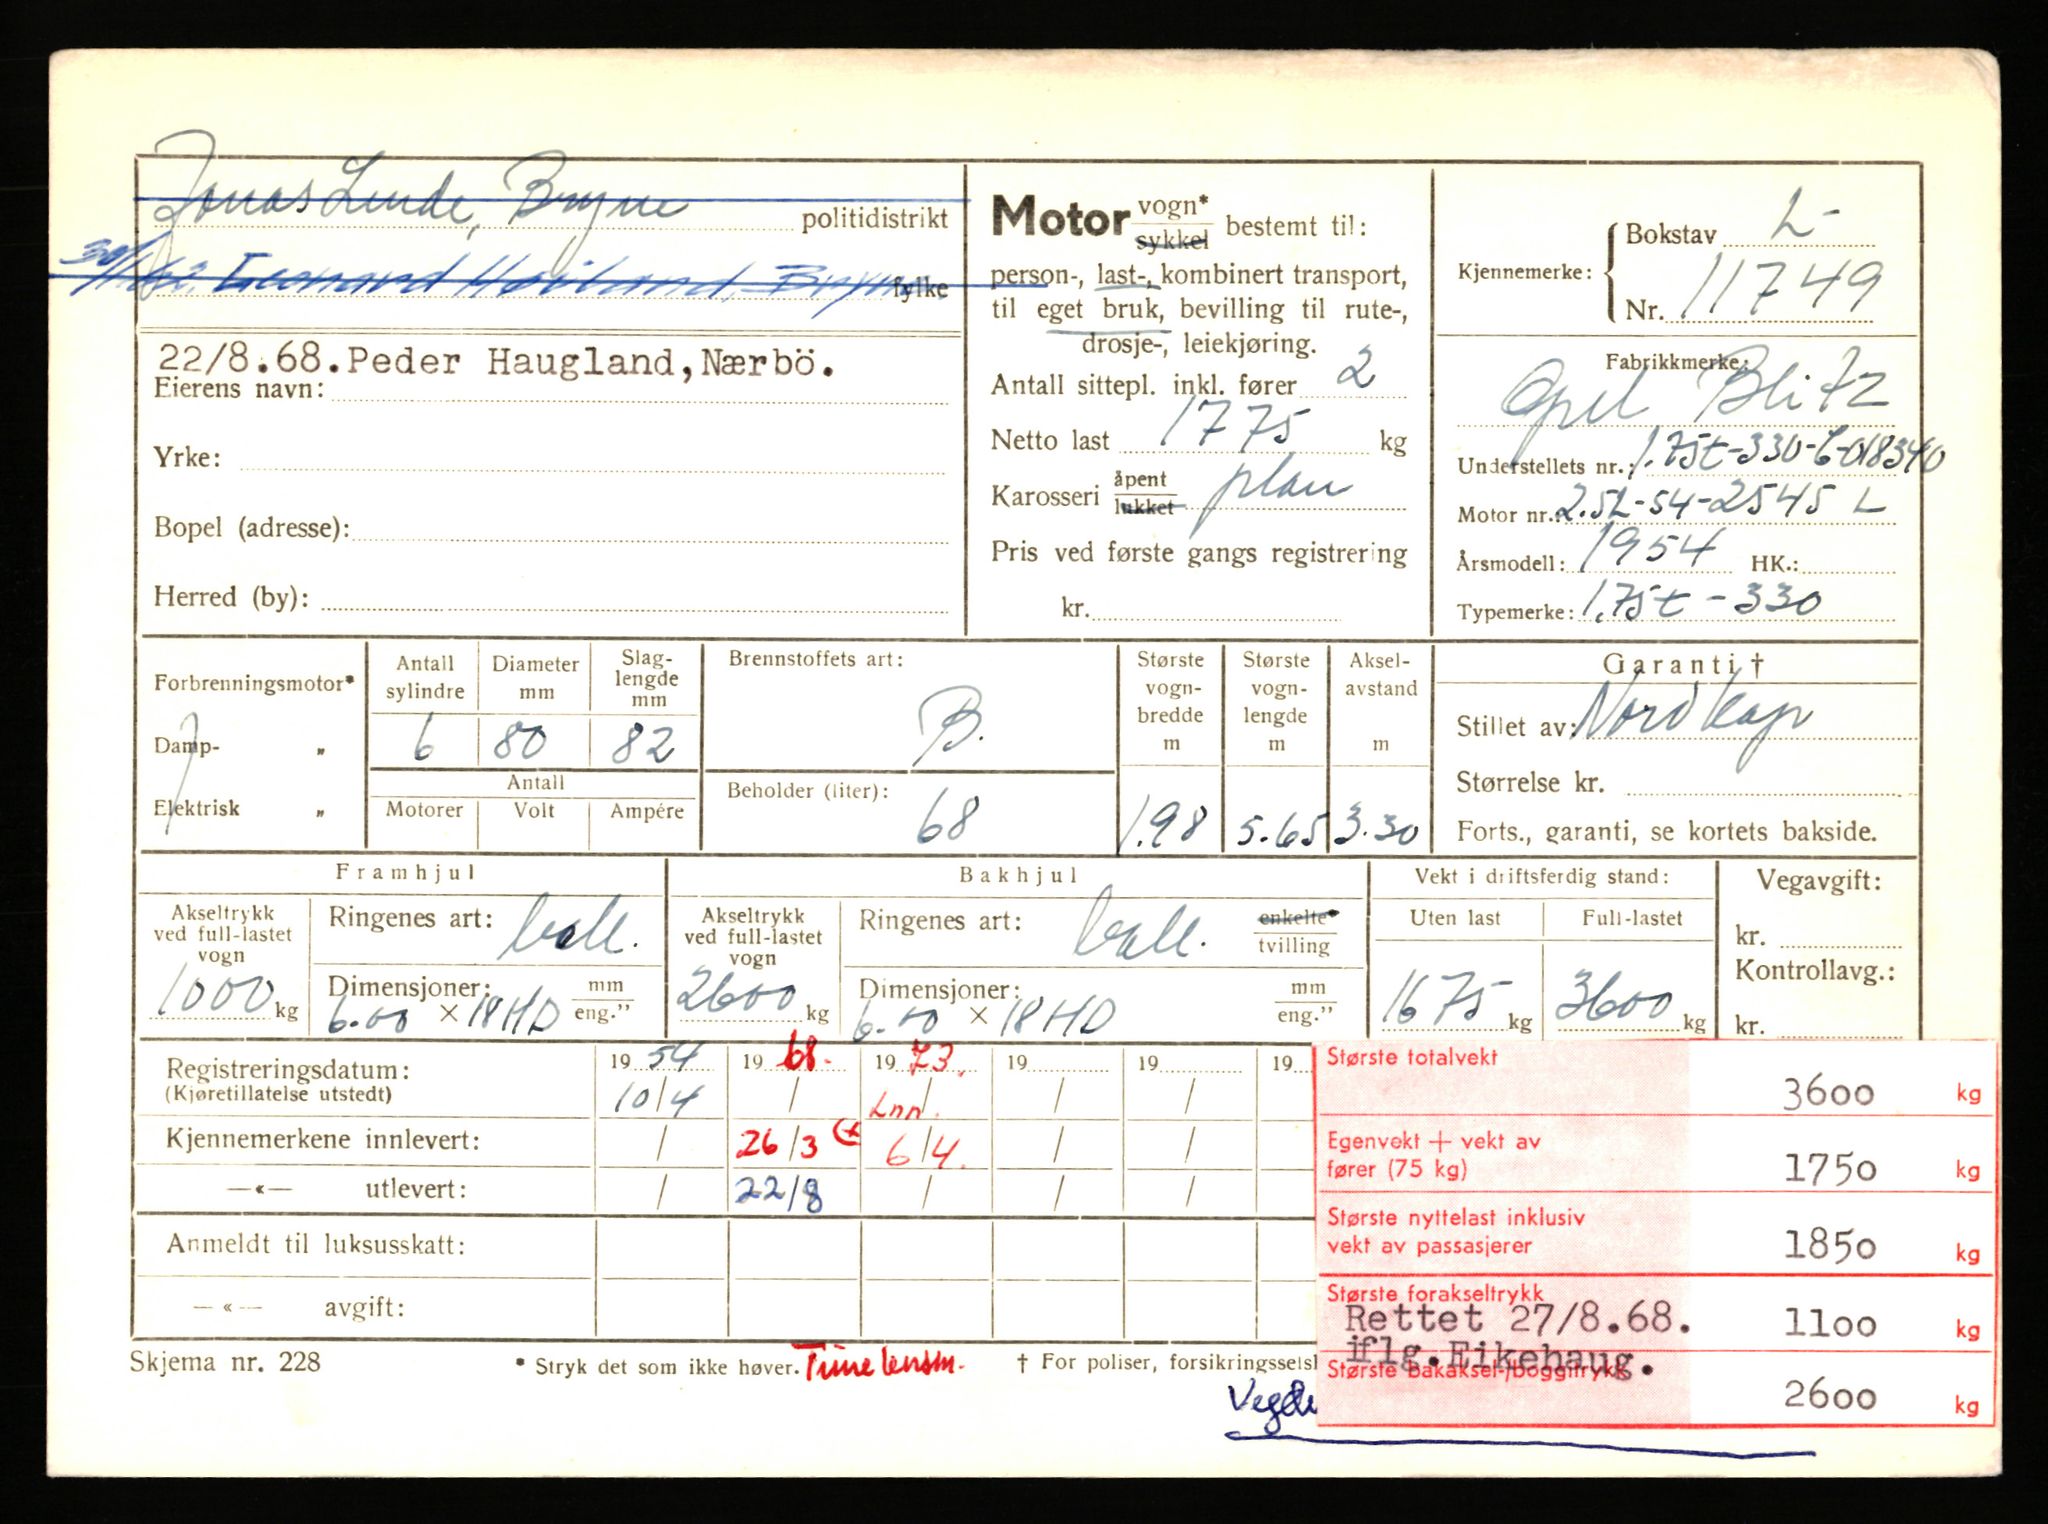 Jonas Lende, Bryne politidistrikt
30/1 62. Høiland, Bryne fylke
22/8.68. Peder Haugland, Nærbö.
Eierens navn:
Yrke:
Bopel (adresse):
Herred (by):
Motor vogn* sykkel bestemt til:
person-, last-, kombinert transport,
til eget bruk, bevilling til rute-,
drosje-, leiekjøring.
Antall sittepl. inkl. fører 2
Netto last 1775 kg
Karosseri åpent lukket plan
Pris ved første gangs registrering
kr.
Kjennemerke: Bokstav L-
Nr. 11749
Fabrikkmerke:
Opel Blitz
Understellets nr.: 1.75t-330-6-018340
Motor nr.: 2.5L-54-2545 L
Årsmodell: 1954 HK.:
Typemerke: 1.75t-330
Forbrenningsmotor*
Damp- "
Elektrisk "
Antall sylindre Diameter mm Slag-lengde mm
6 80 82
Antall
Motorer Volt Ampére
Brennstoffets art:
B.
Beholder (liter):
68
Største vogn-bredde m
1.98
Største vogn-lengde m
5.65
Aksel-avstand m
3.30
Garanti †
Stillet av: Nordkap
Størrelse kr.
Forts., garanti, se kortets bakside.
Framhjul
Akseltrykk ved full-lastet vogn
1000 kg
Ringenes art: ball.
Dimensjoner: mm eng."
6.00 × 18 HD
Bakhjul
Akseltrykk ved full-lastet vogn
2600 kg
Ringenes art: ball. enkelte* tvilling
Dimensjoner: mm eng."
6.00 × 18 HD
Vekt i driftsferdig stand:
Uten last Full-lastet
1675 kg 3600 kg
Vegavgift:
kr.
Kontrollavg.:
kr.
Registreringsdatum: 19 54 19 68. 19 73. 19 19 19
(Kjøretillatelse utstedt) 10/4 / Inn. / / /
Kjennemerkene innlevert: / 26/3 (x 6/4. / /
—«— utlevert: / 22/8 / / /
Anmeldt til luksusskatt:
—«— avgift:
Største totalvekt 3600 kg
Egenvekt + vekt av
fører (75 kg) 1750 kg
Største nyttelast inklusiv
vekt av passasjerer 1850 kg
Største forakseltrykk 1100 kg
Rettet 27/8.68.
iflg. Eikehaug.
Største bakaksel-/boggitrykk 2600 kg
Skjema nr. 228
* Stryk det som ikke høver. Time lensm.
† For poliser, forsikringsselsk